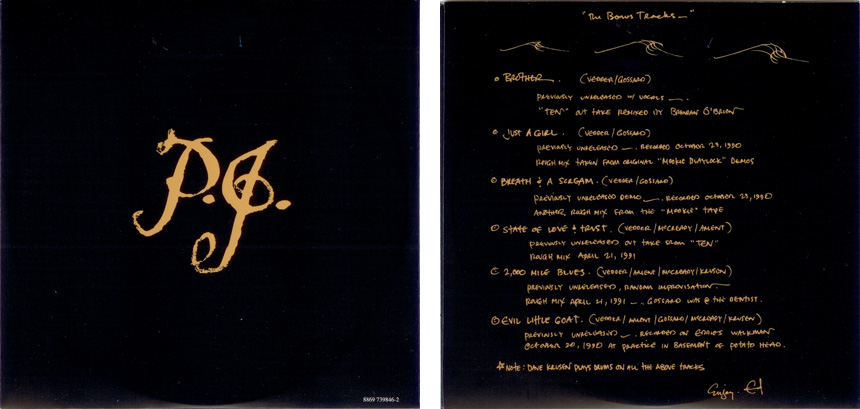 P.J.
8869 739846-2
"The Bonus Tracks—"
BROTHER. (VEDDER/GOSSARD)
PREVIOUSLY UNRELEASED W/ VOCALS —.
"TEN" OUT TAKE REMIXED BY BRENDAN O'BRIEN
JUST A GIRL. (VEDDER/GOSSARD)
PREVIOUSLY UNRELEASED —. RECORDED OCTOBER 23, 1990
ROUGH MIX TAKEN FROM ORIGINAL "MOOKIE BLAYLOCK" DEMOS
BREATH & A SCREAM. (VEDDER/GOSSARD)
PREVIOUSLY UNRELEASED DEMO —. RECORDED OCTOBER 23, 1990
ANOTHER ROUGH MIX FROM THE "MOOKIE" TAPE
STATE OF LOVE & TRUST. (VEDDER/MCCREADY/AMENT)
PREVIOUSLY UNRELEASED OUT TAKE FROM "TEN"
ROUGH MIX APRIL 21, 1991
2,000 MILE BLUES. (VEDDER/AMENT/MCCREADY/KRUSEN)
PREVIOUSLY UNRELEASED, RANDOM IMPROVISATION.
ROUGH MIX APRIL 21, 1991 —. GOSSARD WAS @ THE DENTIST.
EVIL LITTLE GOAT. (VEDDER/AMENT/GOSSARD/MCCREADY/KRUSEN)
PREVIOUSLY UNRELEASED —. RECORDED ON EDDIE'S WALKMAN
OCTOBER 20, 1990 AT PRACTICE IN BASEMENT OF POTATO HEAD.
*NOTE: DAVE KRUSEN PLAYS DRUMS ON ALL THE ABOVE TRACKS
Enjoy. Ed